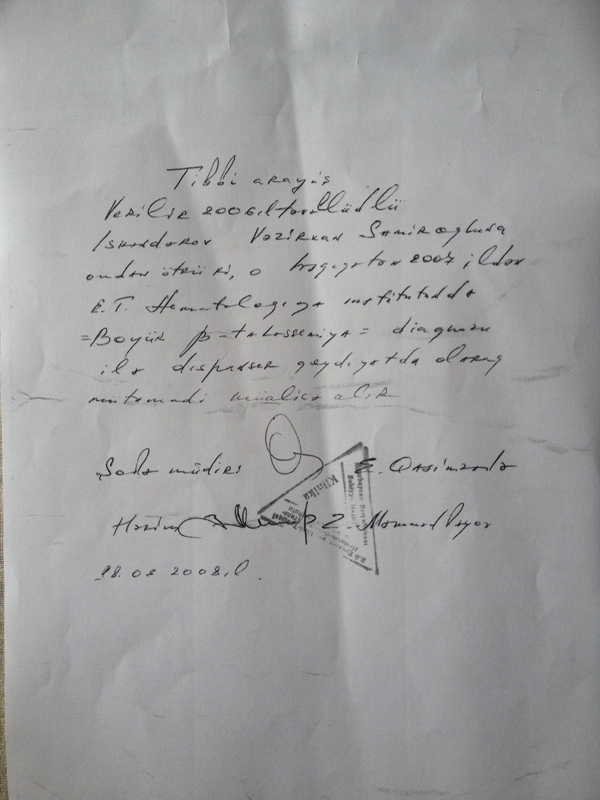 Tibbi arayış
Verilir 2006 il təvəllüdlü
İskəndərov Vəzirxan Samir oğluna
ondan ötrü ki, o həqiqətən 2007 ildən
E.T. Hematologiya institutunda
=Böyük β-talassemiya= diaqnozu
ilə dispanser qeydiyyatda olaraq
mütəmadi müalicə alır
Şöbə müdiri E. Qasımzadə
Həkim Z. Məmmədbəyov
2008 il.
Klinika